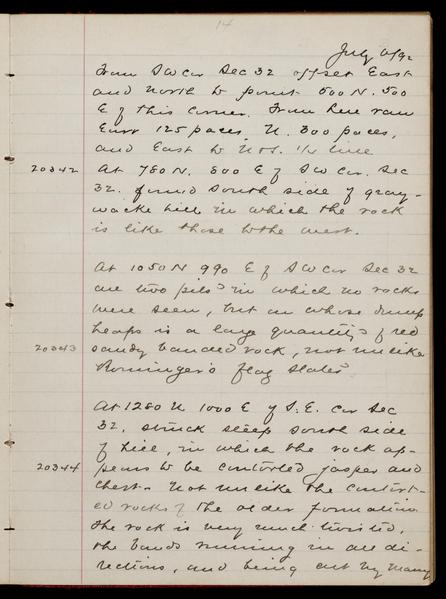 14
July 6/92
From SW cor Sec 32 offset East
and North to point 500 N. 500
E of this corner. From here ran
East 125 paces, N. 300 paces,
and East to N & S. 1/4 line
20342 At 780 N. 800 E of SW cor. Sec
32. found south side of gray-
wacke hill in which the rock
is like those to the west.
At 1050 N 990 E of SW cor Sec 32
are two pits in which no rocks
were seen, but on whose dump
heaps is a large quantity of red
20343 sandy banded rock, not unlike
Rominger's flag slates
At 1280 N 1000 E of S.E. cor Sec
32, struck steep south side
of hill, in which the rock ap-
20344 pears to be contorted jasper and
chert. Not unlike the contort-
ed rocks of the older formation
the rock is very much twisted,
the bands running in all di-
rections, and being cut by many